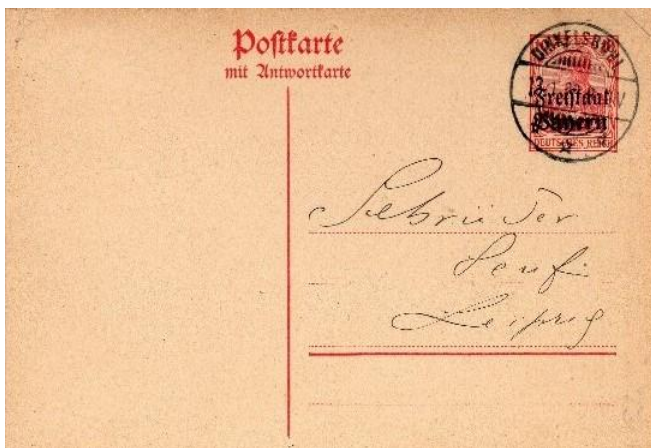 Postkarte
mit Antwortkarte
DINKELSBÜHL
Freistaat
Bayern
DEUTSCHES REICH
Gebrüder
Senf
Leipzig